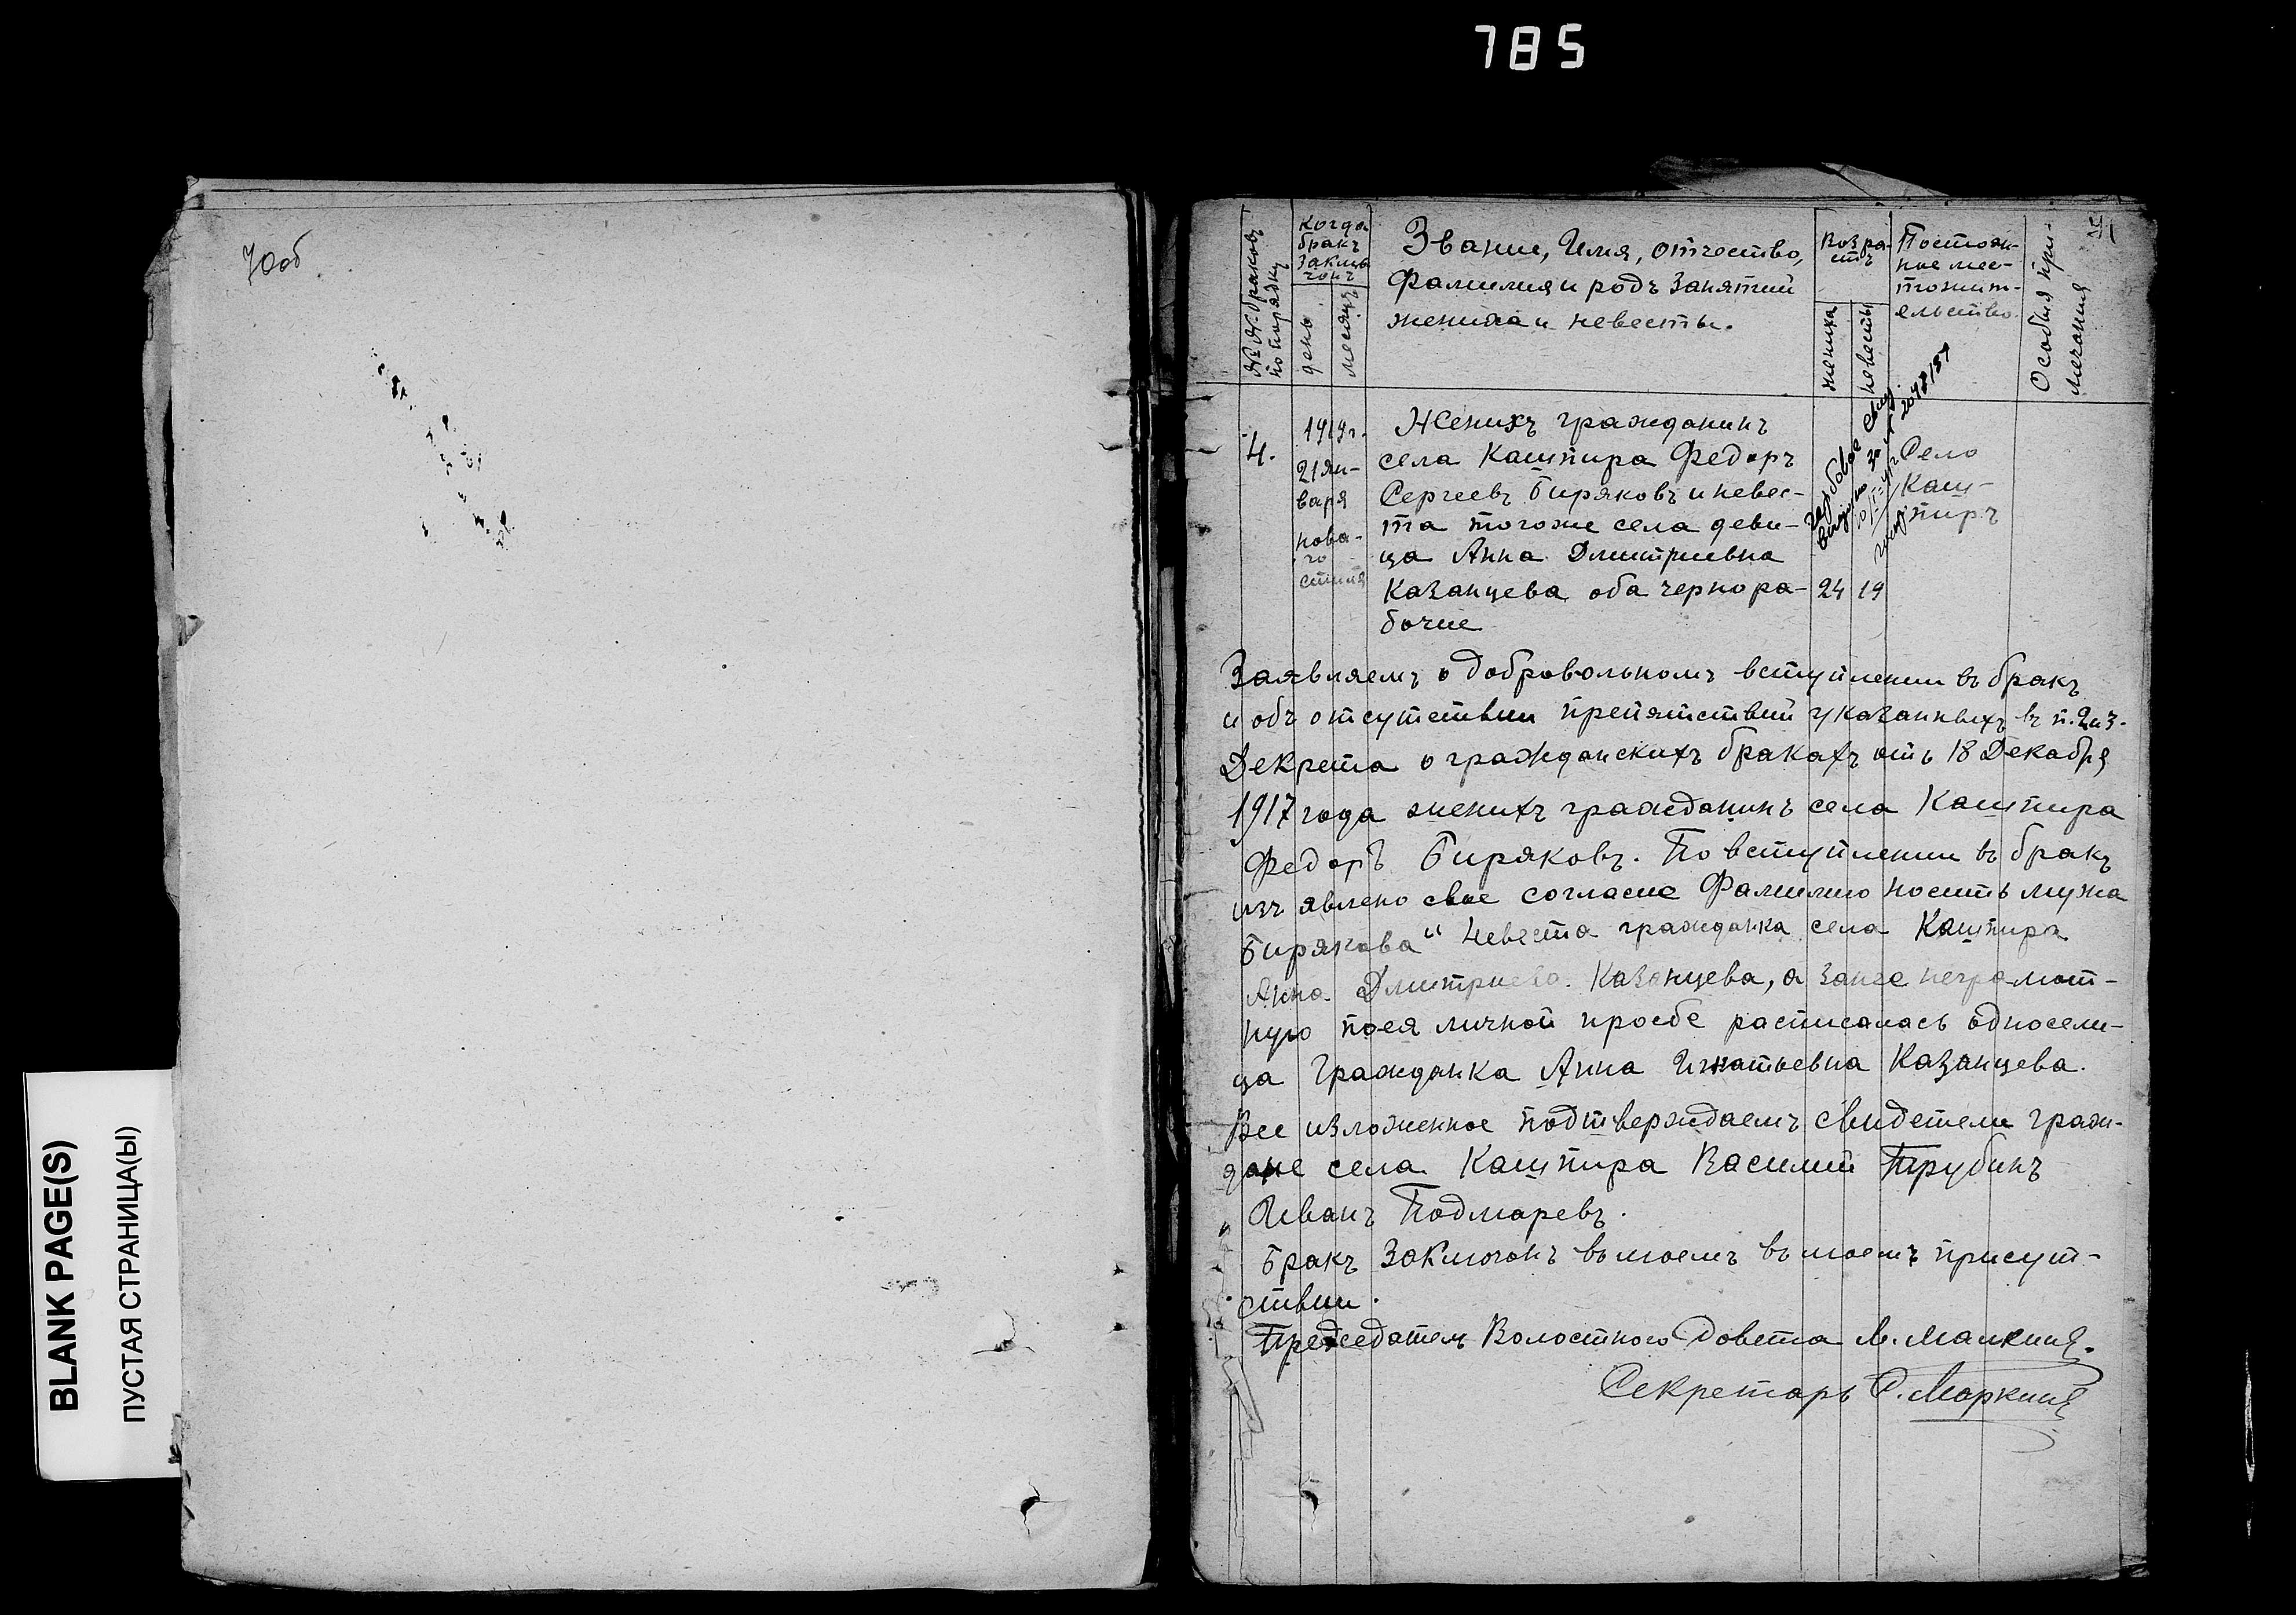 785
BLANK PAGE(S)
ПУСТАЯ СТРАНИЦА(Ы)
№№ браковъ
по порядку
Когда
бракъ
заключ
чонъ
день
месяцъ
Звание, Имя, отчество,
Фамилия и родъ занятий
жениха и невесты.
Возра-
стъ
жениха
невесты
Постоян-
ное мес-
тожит-
ельство
Особыя при-
мечания
4.
1919г.
21 Ян-
варя
нова-
го
стиля
Женихъ гражданинъ
села Кашпира Федоръ
Сергеевъ Биряковъ и невес-
та тогоже села деви-
ца Анна Дмитриевна
Казанцева оба черно ра-
бочие
24 19
Село
Каш-
пиръ
Заявляемъ о добровольномъ вступлении въ бракъ
и объ отсутствии препятствий указанныхъ въ п. 2 и 3.
Декрета о гражданскихъ бракахъ отъ 18 Декабря
1917 года женихъ гражданинъ села Кашпира
Федоръ Биряковъ. По вступлении въ бракъ
изъявлено свое согласие Фамилию носить мужа
Бирякова" Невеста гражданка села Кашпира
Анна Дмитриева Казанцева, а занее неграмот-
ную поея личной просбе расписалась односели-
ца Гражданка Анна Игнатьевна Казанцева.
Все изложенное подтверждаемъ свидетели граж-
дане села Кашпира Василий Трубинъ
Иванъ Подмаревъ.
Бракъ заключонъ въ моемъ въ моемъ присут-
ствии.
Председатель Волостного Совета М. Малкинъ.
Секретарь С. Маркинъ